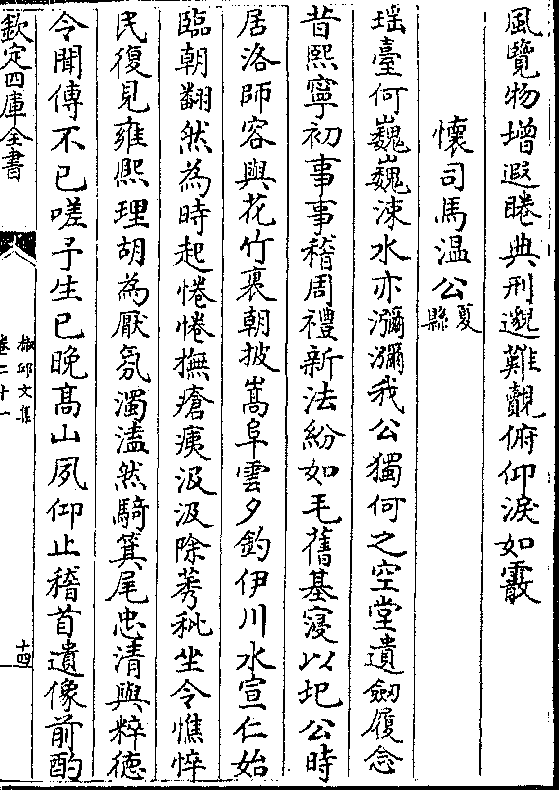 風覽物增遐睠典刑邈難覿俯仰淚如霰
懷司馬温公夏縣
瑶臺何巍巍涑水亦瀰瀰我公獨何之空堂遺劒履念
昔熙寧初事事稽周禮新法紛如毛舊基寖以圯公時
居洛師容與花竹裏朝披嵩阜雲夕釣伊川水宣仁始
臨朝翻然為時起惓惓撫瘡痍汲汲除莠秕坐令憔悴
民復見雍熙理胡為厭氛濁溘然騎箕尾忠清與粹德
令聞傳不已嗟予生已晚髙山夙仰止稽首遺像前酌
欽定四庫全書
椒邱文集
卷二十一
十四